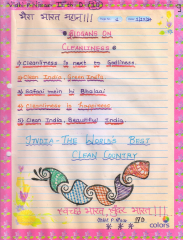 मेरा भारत महान।।।
SLOGANS ON
CLEANLINESS
1) Cleanliness is next to Godliness
2) Clean India, Green India
3) Safai mein hi Bhalaai
4) Cleanliness is Happiness
5) Clean India, Beautiful India
INDIA - THE WORLD'S BEST
CLEAN COUNTRY
स्वच्छ भारत, सुंदर भारत।।।
colors